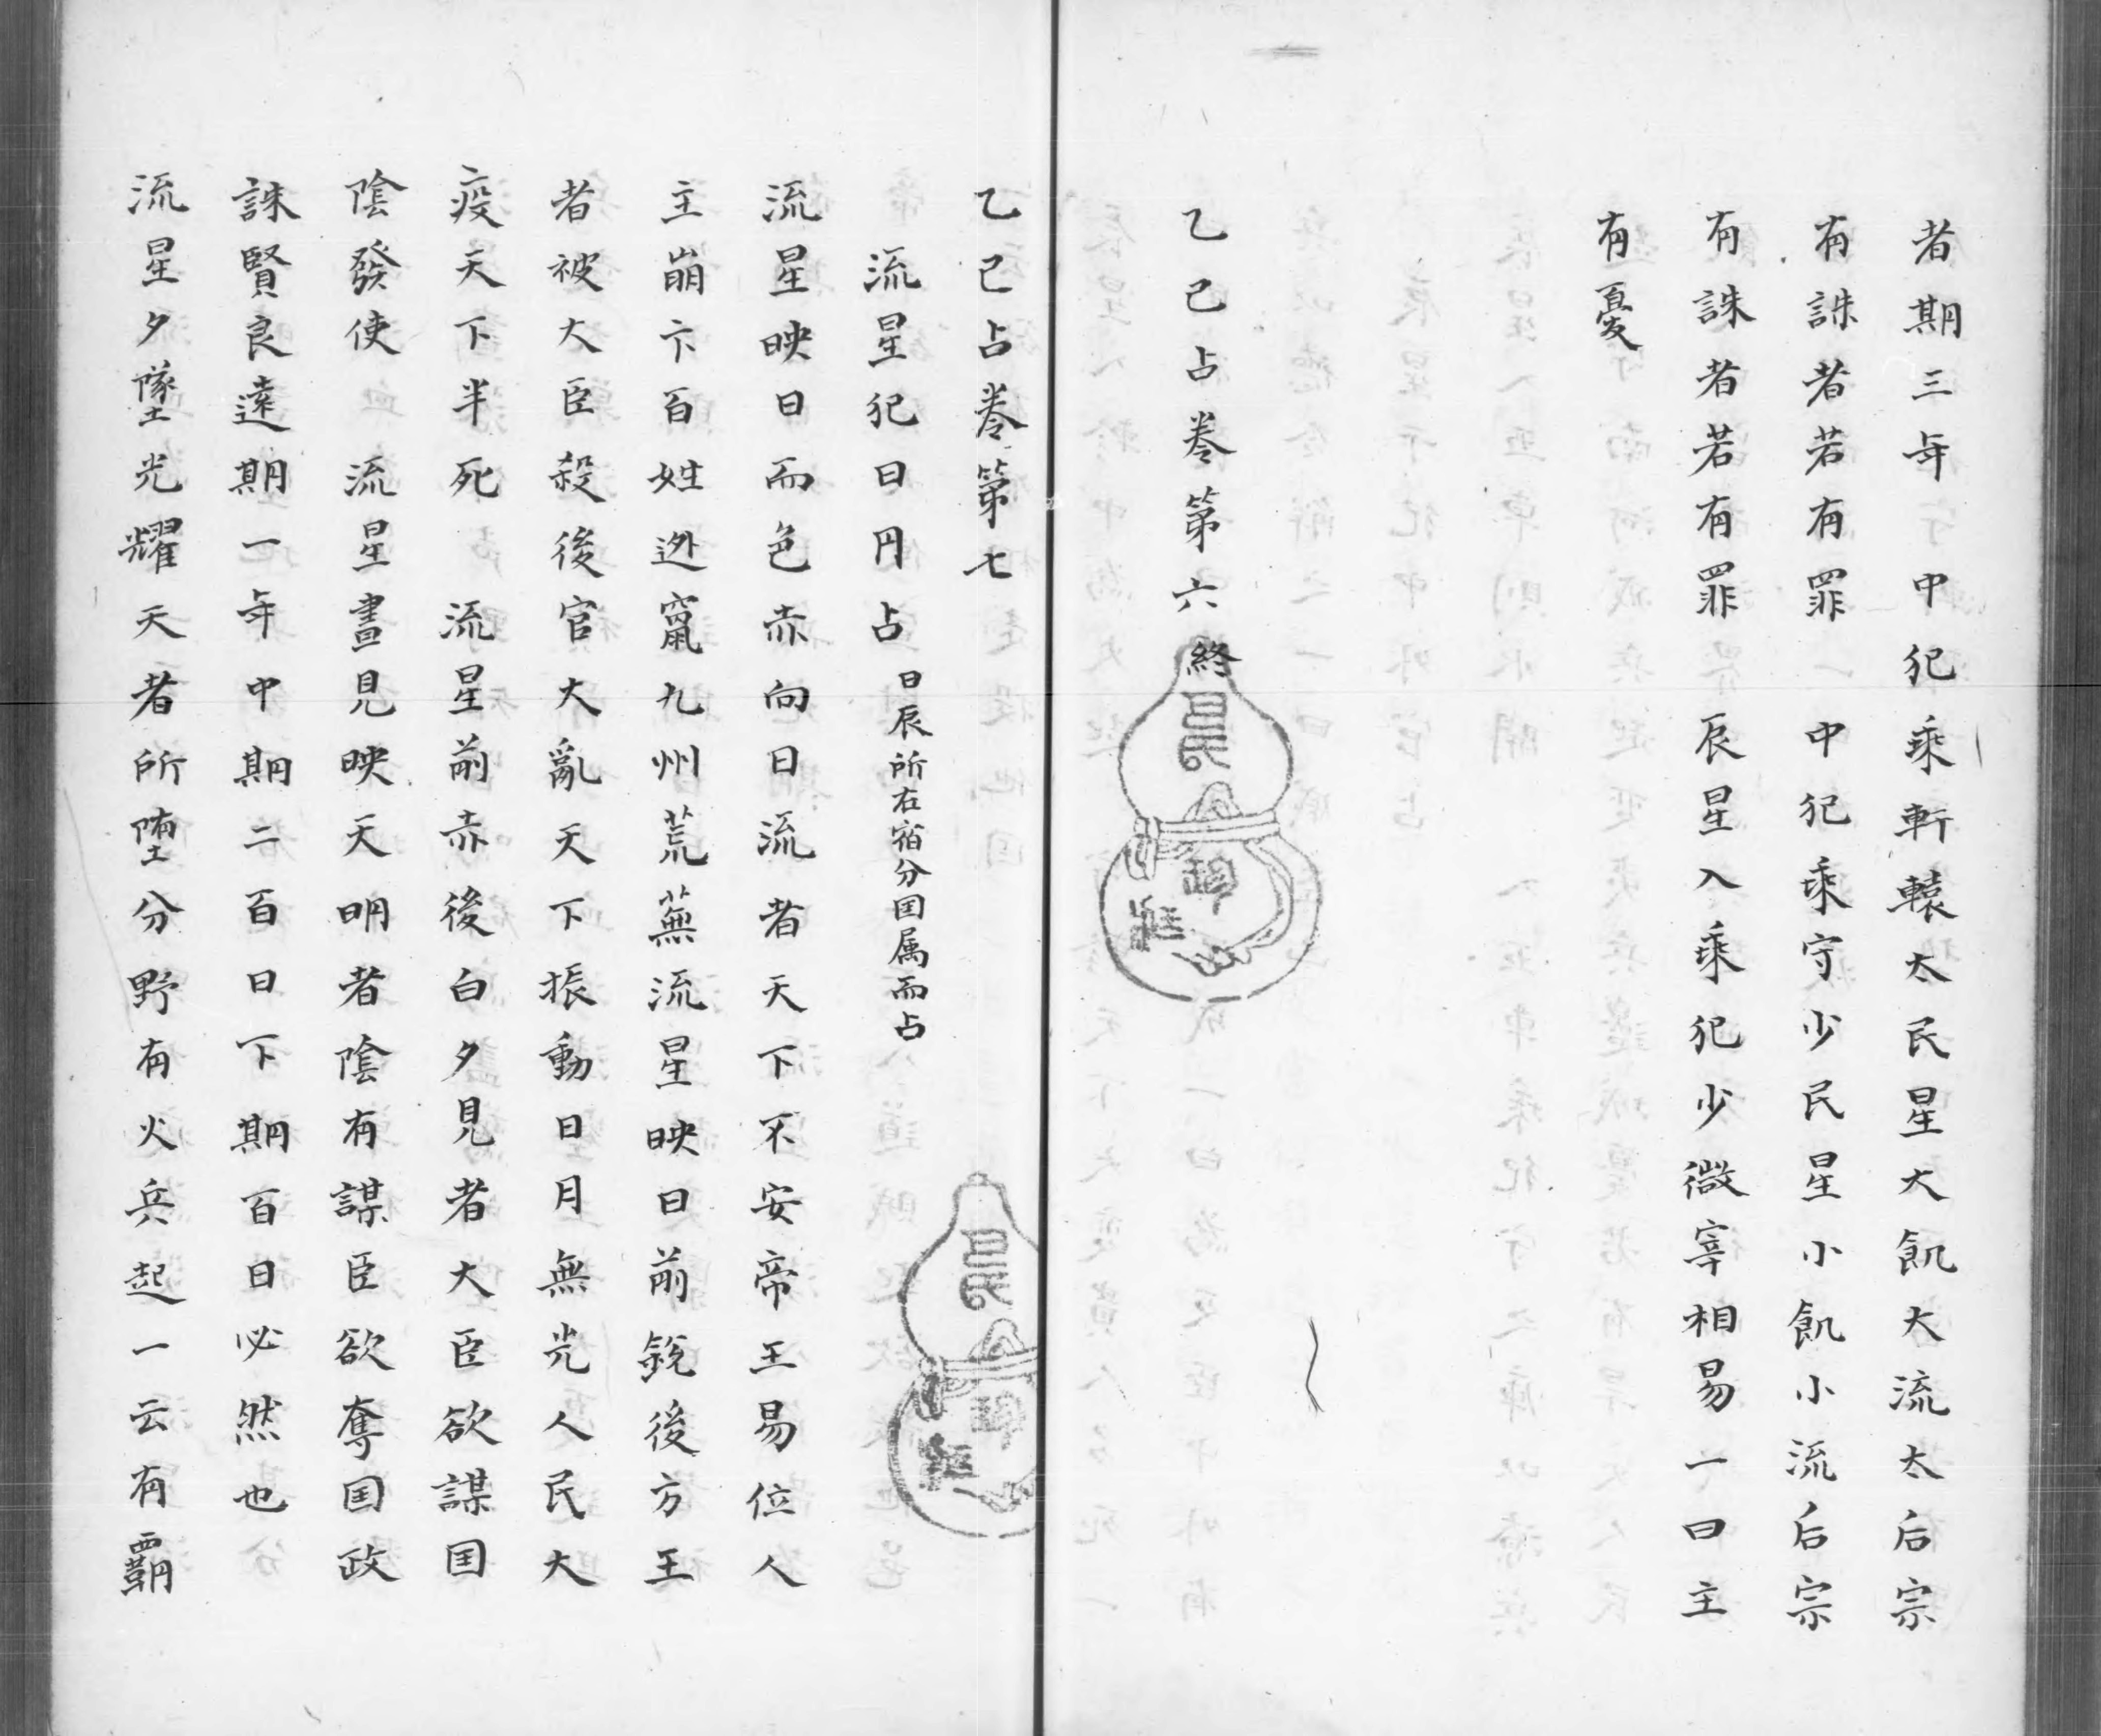 者期三年中犯乘軒轅太民星大飢大流太后宗
有誅者若有罪　中犯乘守少民星小飢小流后宗
有誅者若有罪　辰星入乘犯少微宰相易一曰主
有憂
乙巳占卷第六終
乙巳占卷第七
流星犯日円占　日辰所在宿分囯属而占
流星映日而色赤向日流者天下不安帝王易位人
主崩亡百姓迯竄九州荒蕪流星映日前銳後方王
者被大臣殺後官大亂天下振動日月無光人民大
疫天下半死　流星前赤後白夕見者大臣欲謀囯
陰發使　流星晝見映天明者陰有謀臣欲奪囯政
誅賢良遠期一年中期二百日下期百日必然也
流星夕墜光耀天者所堕分野有火兵起一云有覇